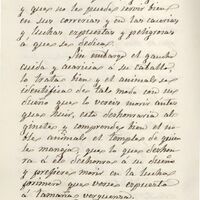 y que no le puede servir bien
en sus correrias y en las cacerias
y luchas expuestas y peligrosas
a que se dedica.
Sin embargo el gaucho
cuida y acaricia a su caballo
lo trata bien y el animal se
identifica de tal modo con su
dueño que lo vereis morir antes
que huir, esto deshonraria al
ginete y comprende bien el no-
ble animal el temple de quien
le maneja, que lo que deshon-
rara á él deshonra á su dueño
y prefiere morir en la lucha
primero que verse expuesto
á tamaña vergüenza.